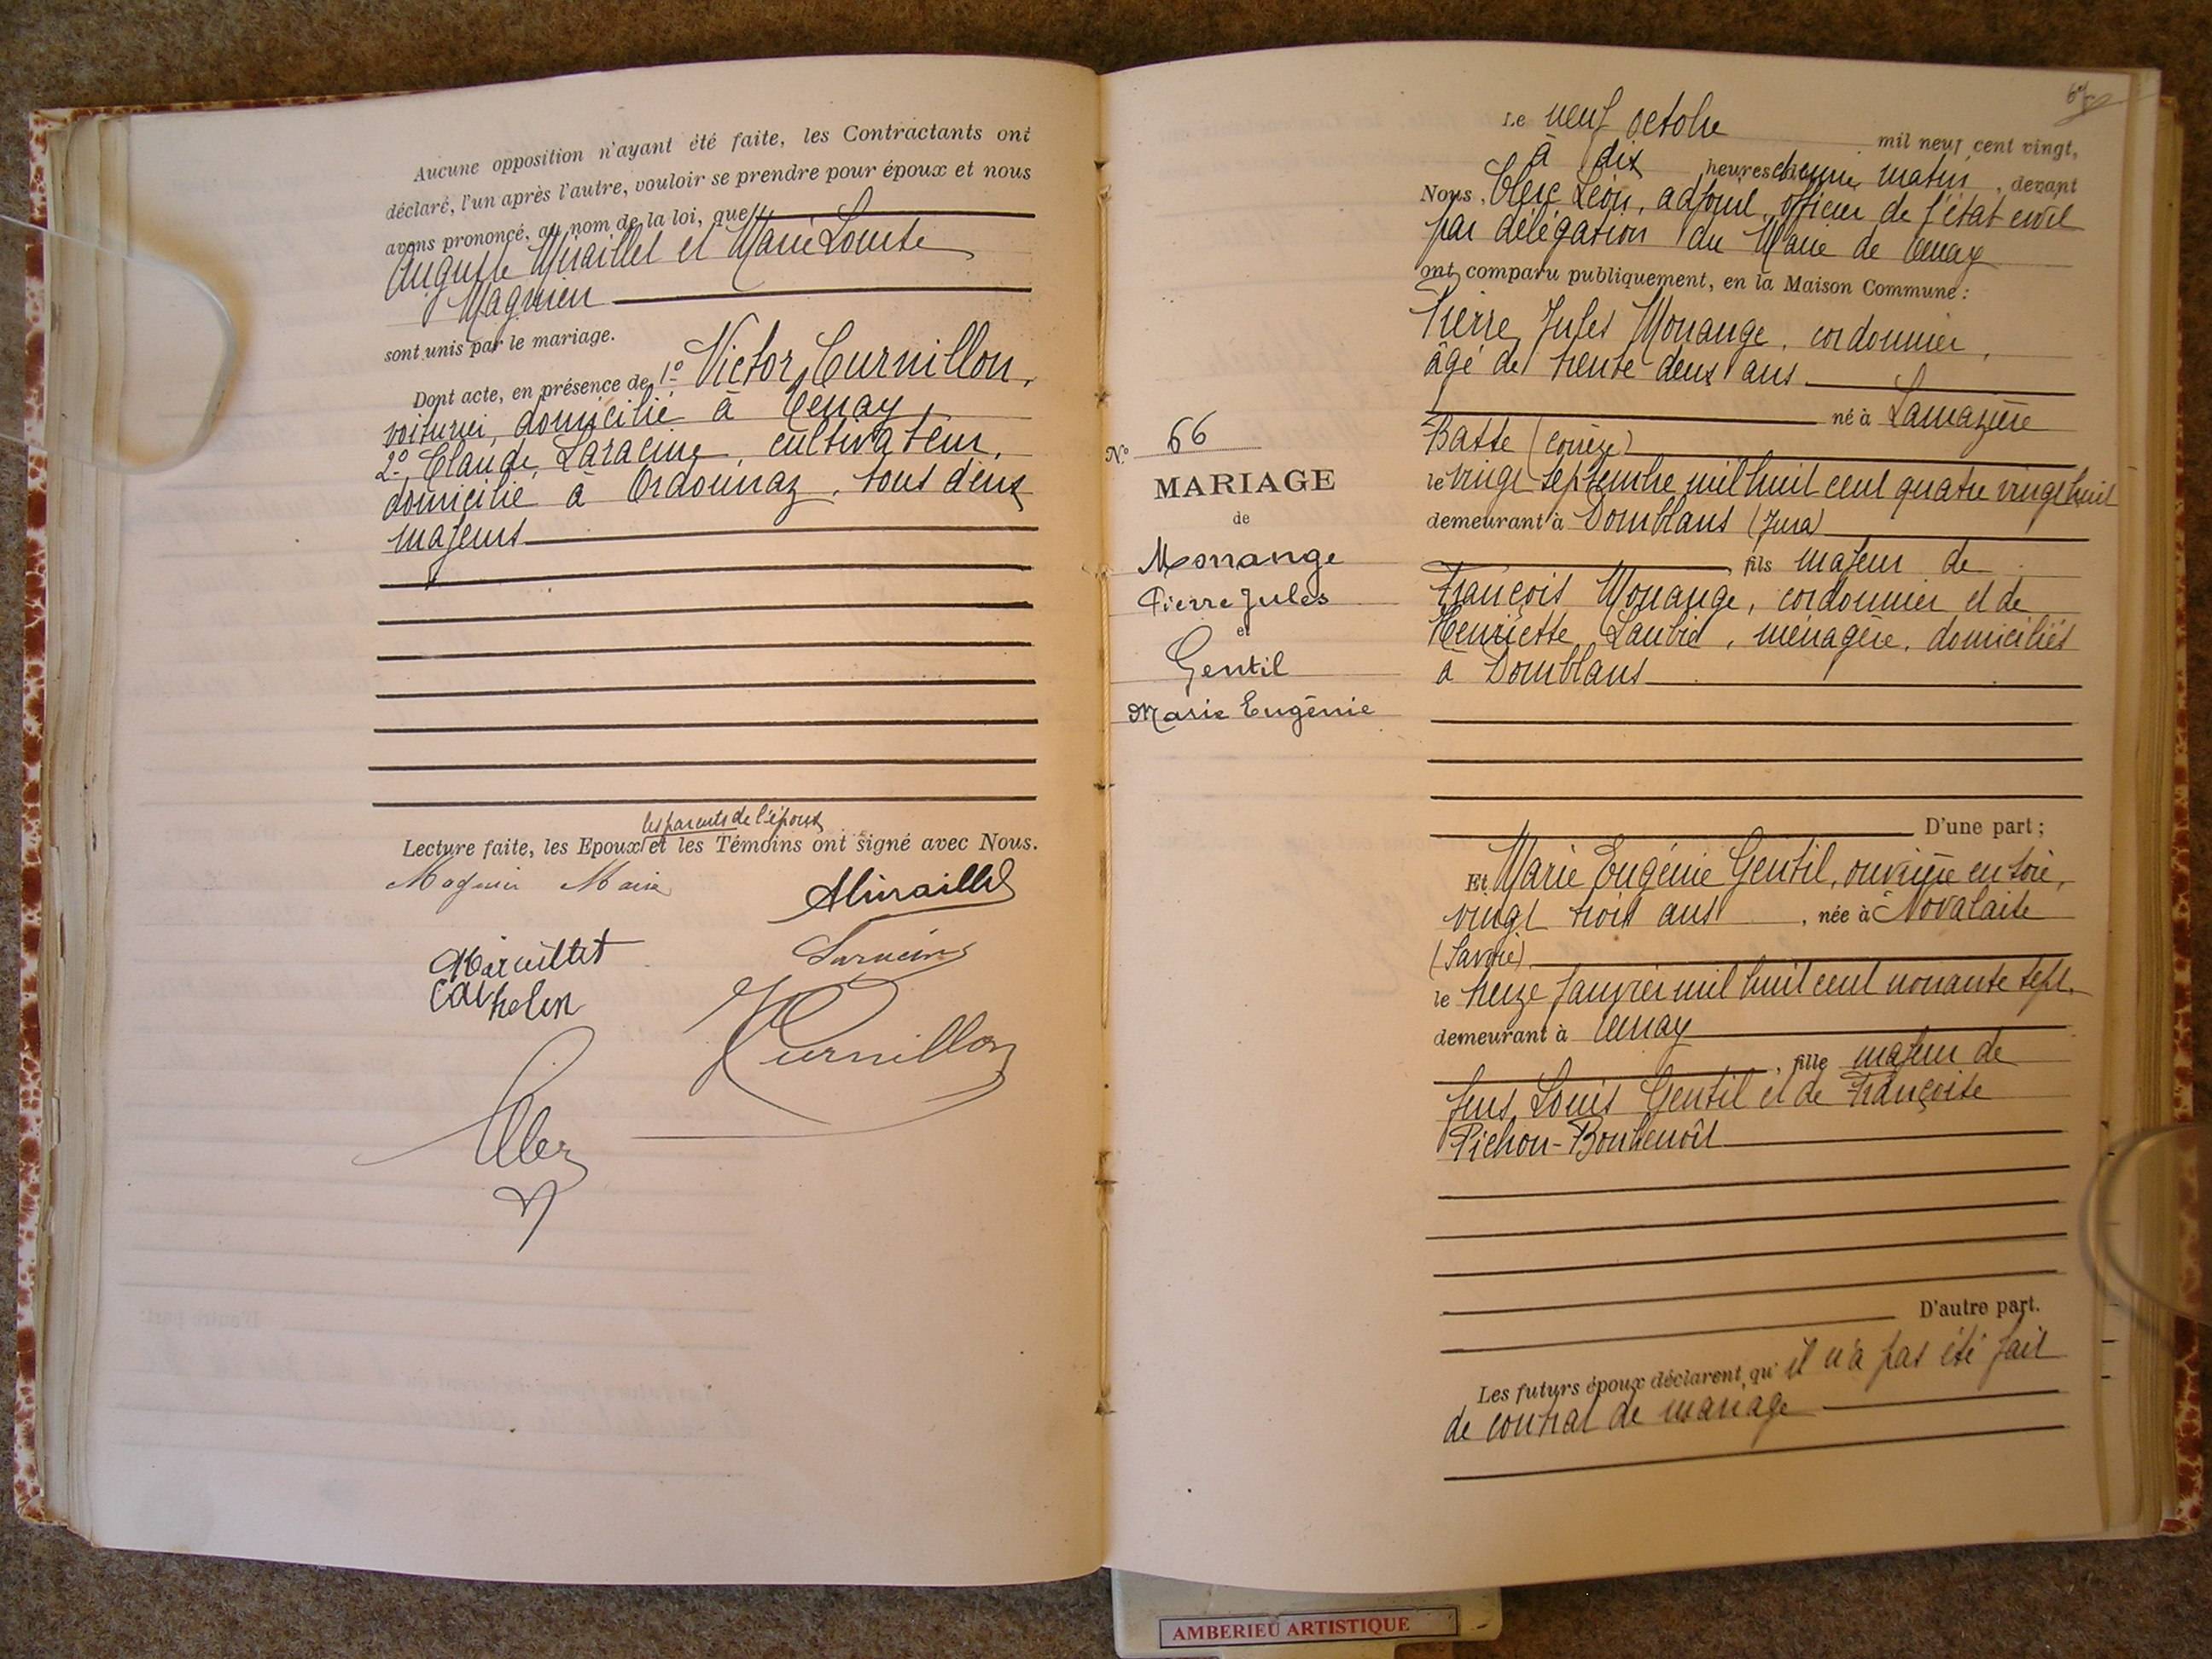 Aucune opposition n'ayant été faite, les Contractants ont
déclaré, l'un après l'autre, vouloir se prendre pour époux et nous
avons prononcé, au nom de la loi, que
Auguste Miraillet et Marie Louise
Magnien
sont unis par le mariage.
Dont acte, en présence de 1º Victor Curnillon,
voiturier, domicilié à Tenay,
2º Claude Laracine, cultivateur,
domicilié à Ordonnaz, tous deux
majeurs
les parents de l'époux
Lecture faite, les Epoux et les Témoins ont signé avec Nous.
Marie
AMiraillet
Miraillet
Laracine
Curnillon
Nº 66
MARIAGE
de
Monange
Pierre Jules
et
Gentil
Marie Eugénie
Le neuf octobre mil neuf cent vingt,
à dix heures du matin, devant
Nous, Clerc Léon, adjoint, officier de l'état civil
par délégation du Maire de Tenay
ont comparu publiquement, en la Maison Commune :
Pierre Jules Monange, cordonnier,
âgé de trente deux ans
né à Lamazière
Basse (Corrèze)
le vingt septembre mil huit cent quatre vingt huit
demeurant à Domblans (Jura)
, fils majeur de
François Monange, cordonnier et de
Henriette Laubie, ménagère, domiciliés
à Domblans
D'une part ;
Et Marie Eugénie Gentil, ouvrière en soie,
vingt trois ans, née à Novalaise
(Savoie)
le treize janvier mil huit cent nonante sept.
demeurant à Tenay
, fille majeur de
feus Louis Gentil et de Françoise
Pichon-Bonbenoît
D'autre part.
Les futurs époux déclarent qu'il n'a pas été fait
de contrat de mariage
AMBERIEU ARTISTIQUE